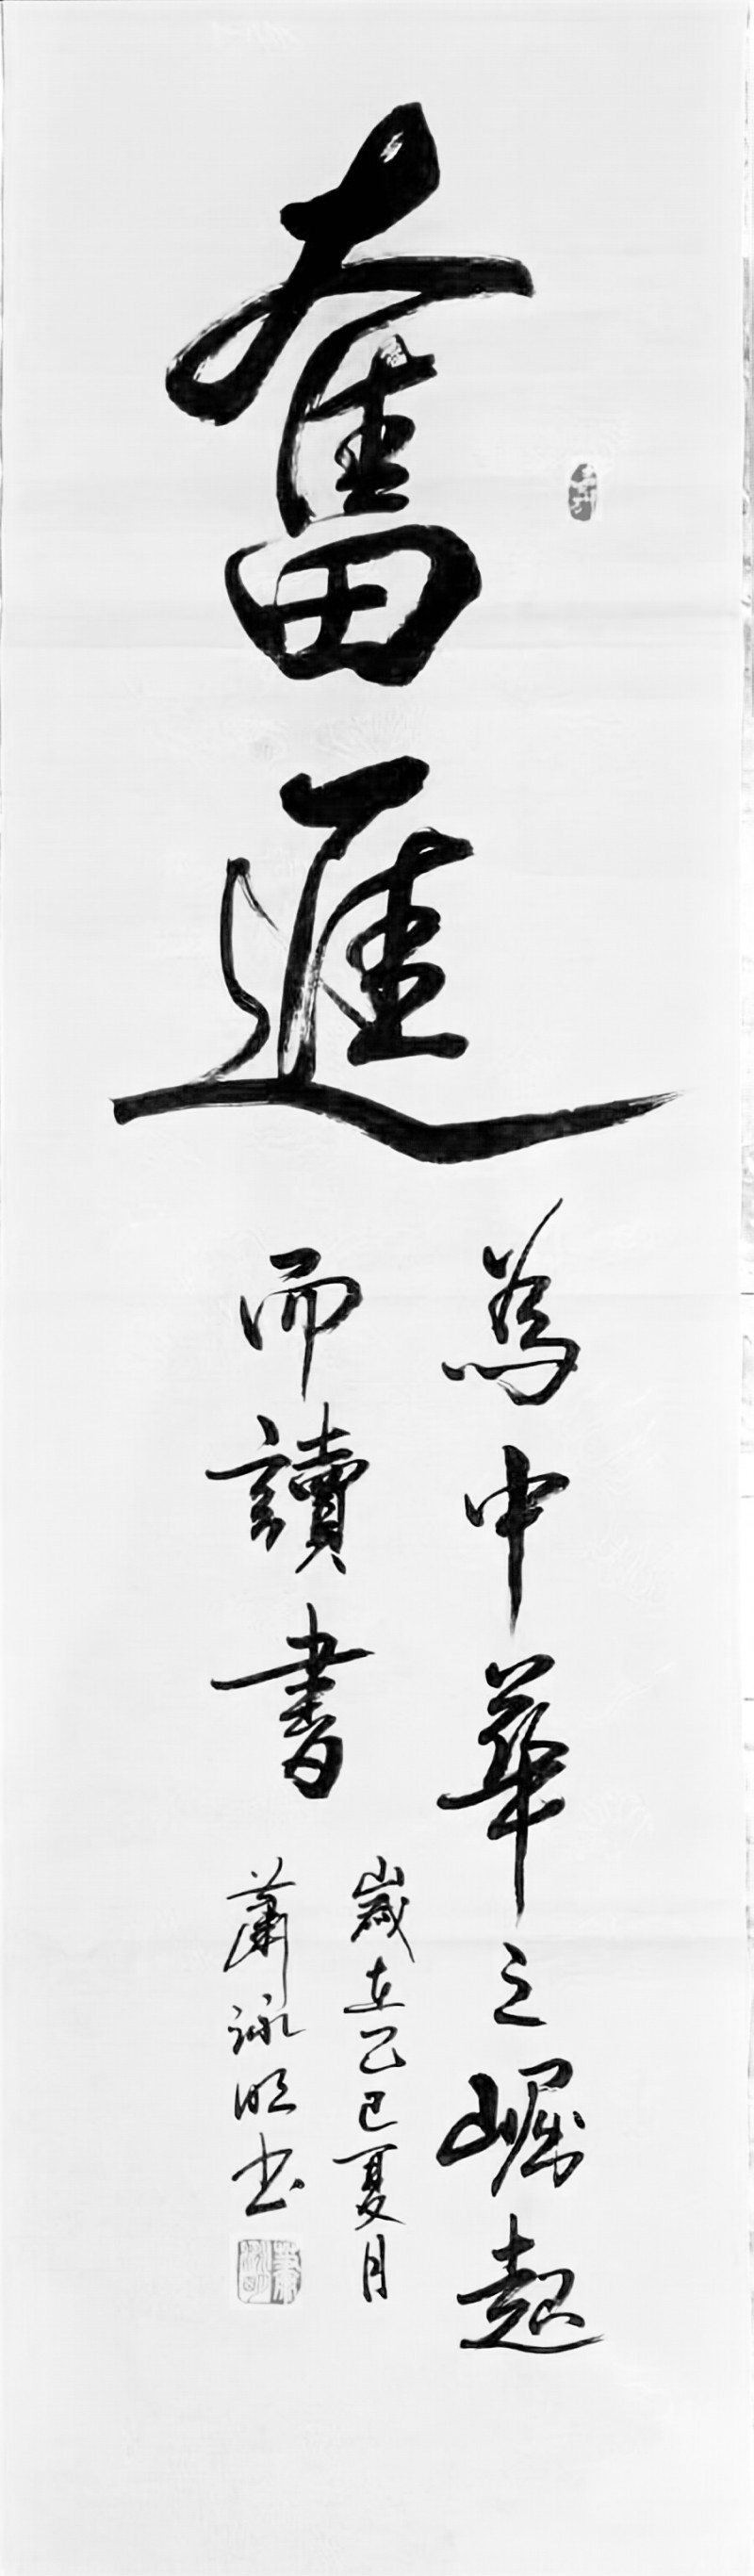 奮進
為中華之崛起
而讀書
歲在乙巳夏月
蕭詠明書